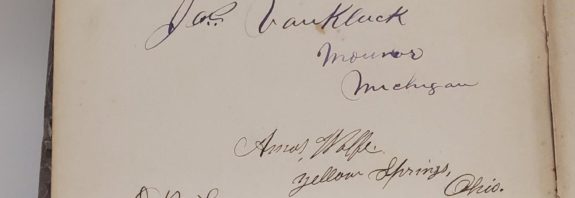 Jas. VanKluck
Monroe
Michigan
Amos Wolfe.
Yellow Springs,
Ohio.